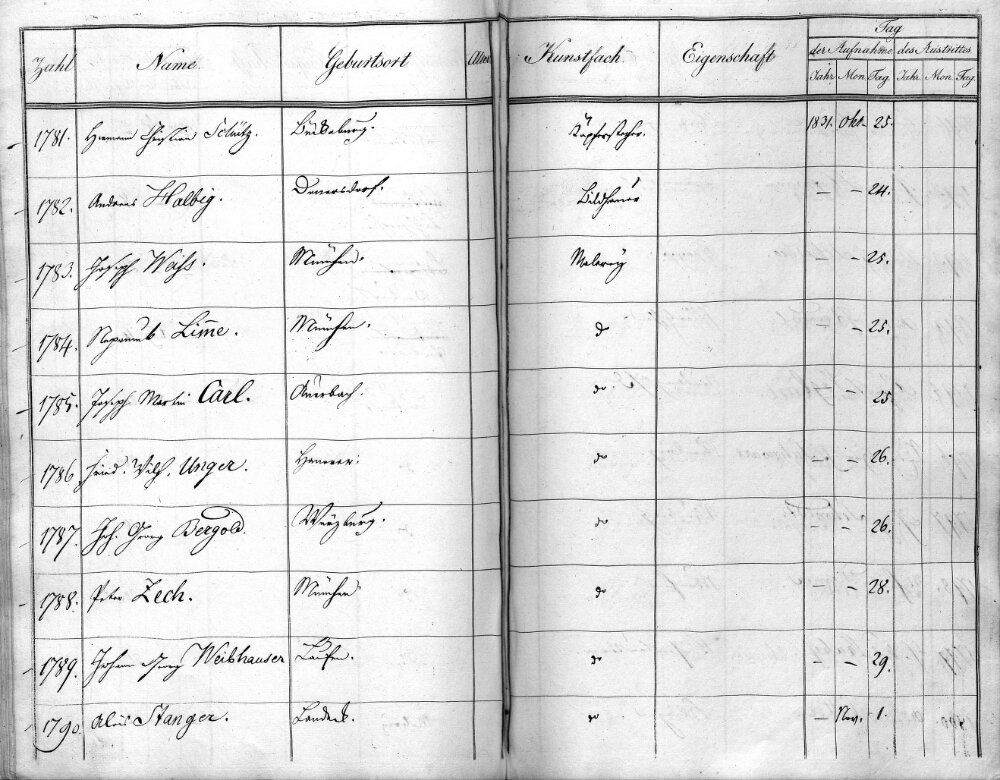 Zahl Name Geburtsort Alter Kunstfach Eigenschaft Tag
der Aufnahme des Austrittes
Jahr Mon. Tag Jahr. Mon. Tag.
1781. Hermann Christian Schütz. Bückeburg. Kupferstecher. 1831. Okt. 25.
1782. Andreas Halbig. Donnersdorf. Bildhauer – – 24.
1783. Joseph Weiß. München. Malerey – – 25.
1784. Nepomuk Lim̅e. München. do – 25.
1785. Joseph Martin Carl. Auerbach. do. – 25
1786 Fried. Wilh. Unger. Hannover. do – – 26.
1787. Joh. Georg Bergold. Würzburg. do – – 26.
1788. Peter Zech. München do – 28.
1789. Johann Georg Weibhauser Laufen. do – – 29.
1790. Alois Stanger. Landeck. do Nov. 1.